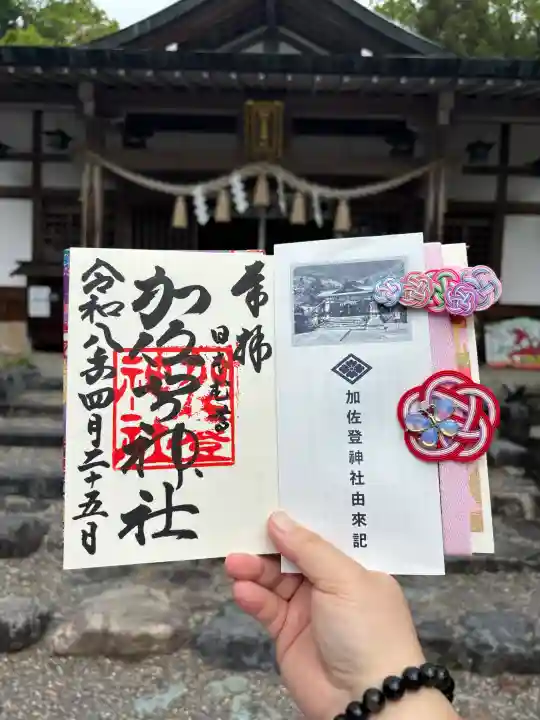 奉拝
日本武尊
加佐登神社
令和八年四月二十五日
加佐登神社由来記